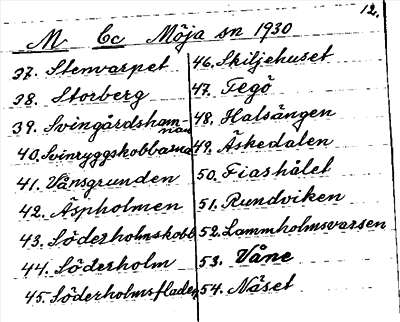 12.
M Cc Möja sn 1930
37. Stenvarpet
38. Storberg
39. Svingårdsham-
nan
40. Svinryggskobbarna
41. Vånsgrunden
42. Äspholmen
43. Söderholmskobb
44. Söderholm
45. Söderholmsfladen
46. Skiljehuset
47. Tegö
48. Halsängen
49. Äskedalen
50. Fiashålet
51. Rundviken
52. Lammholmsvarsen
53. Våne
54. Näset